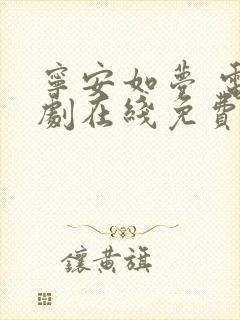 寧安如夢 電
劇在綫免費
鑲黃旗